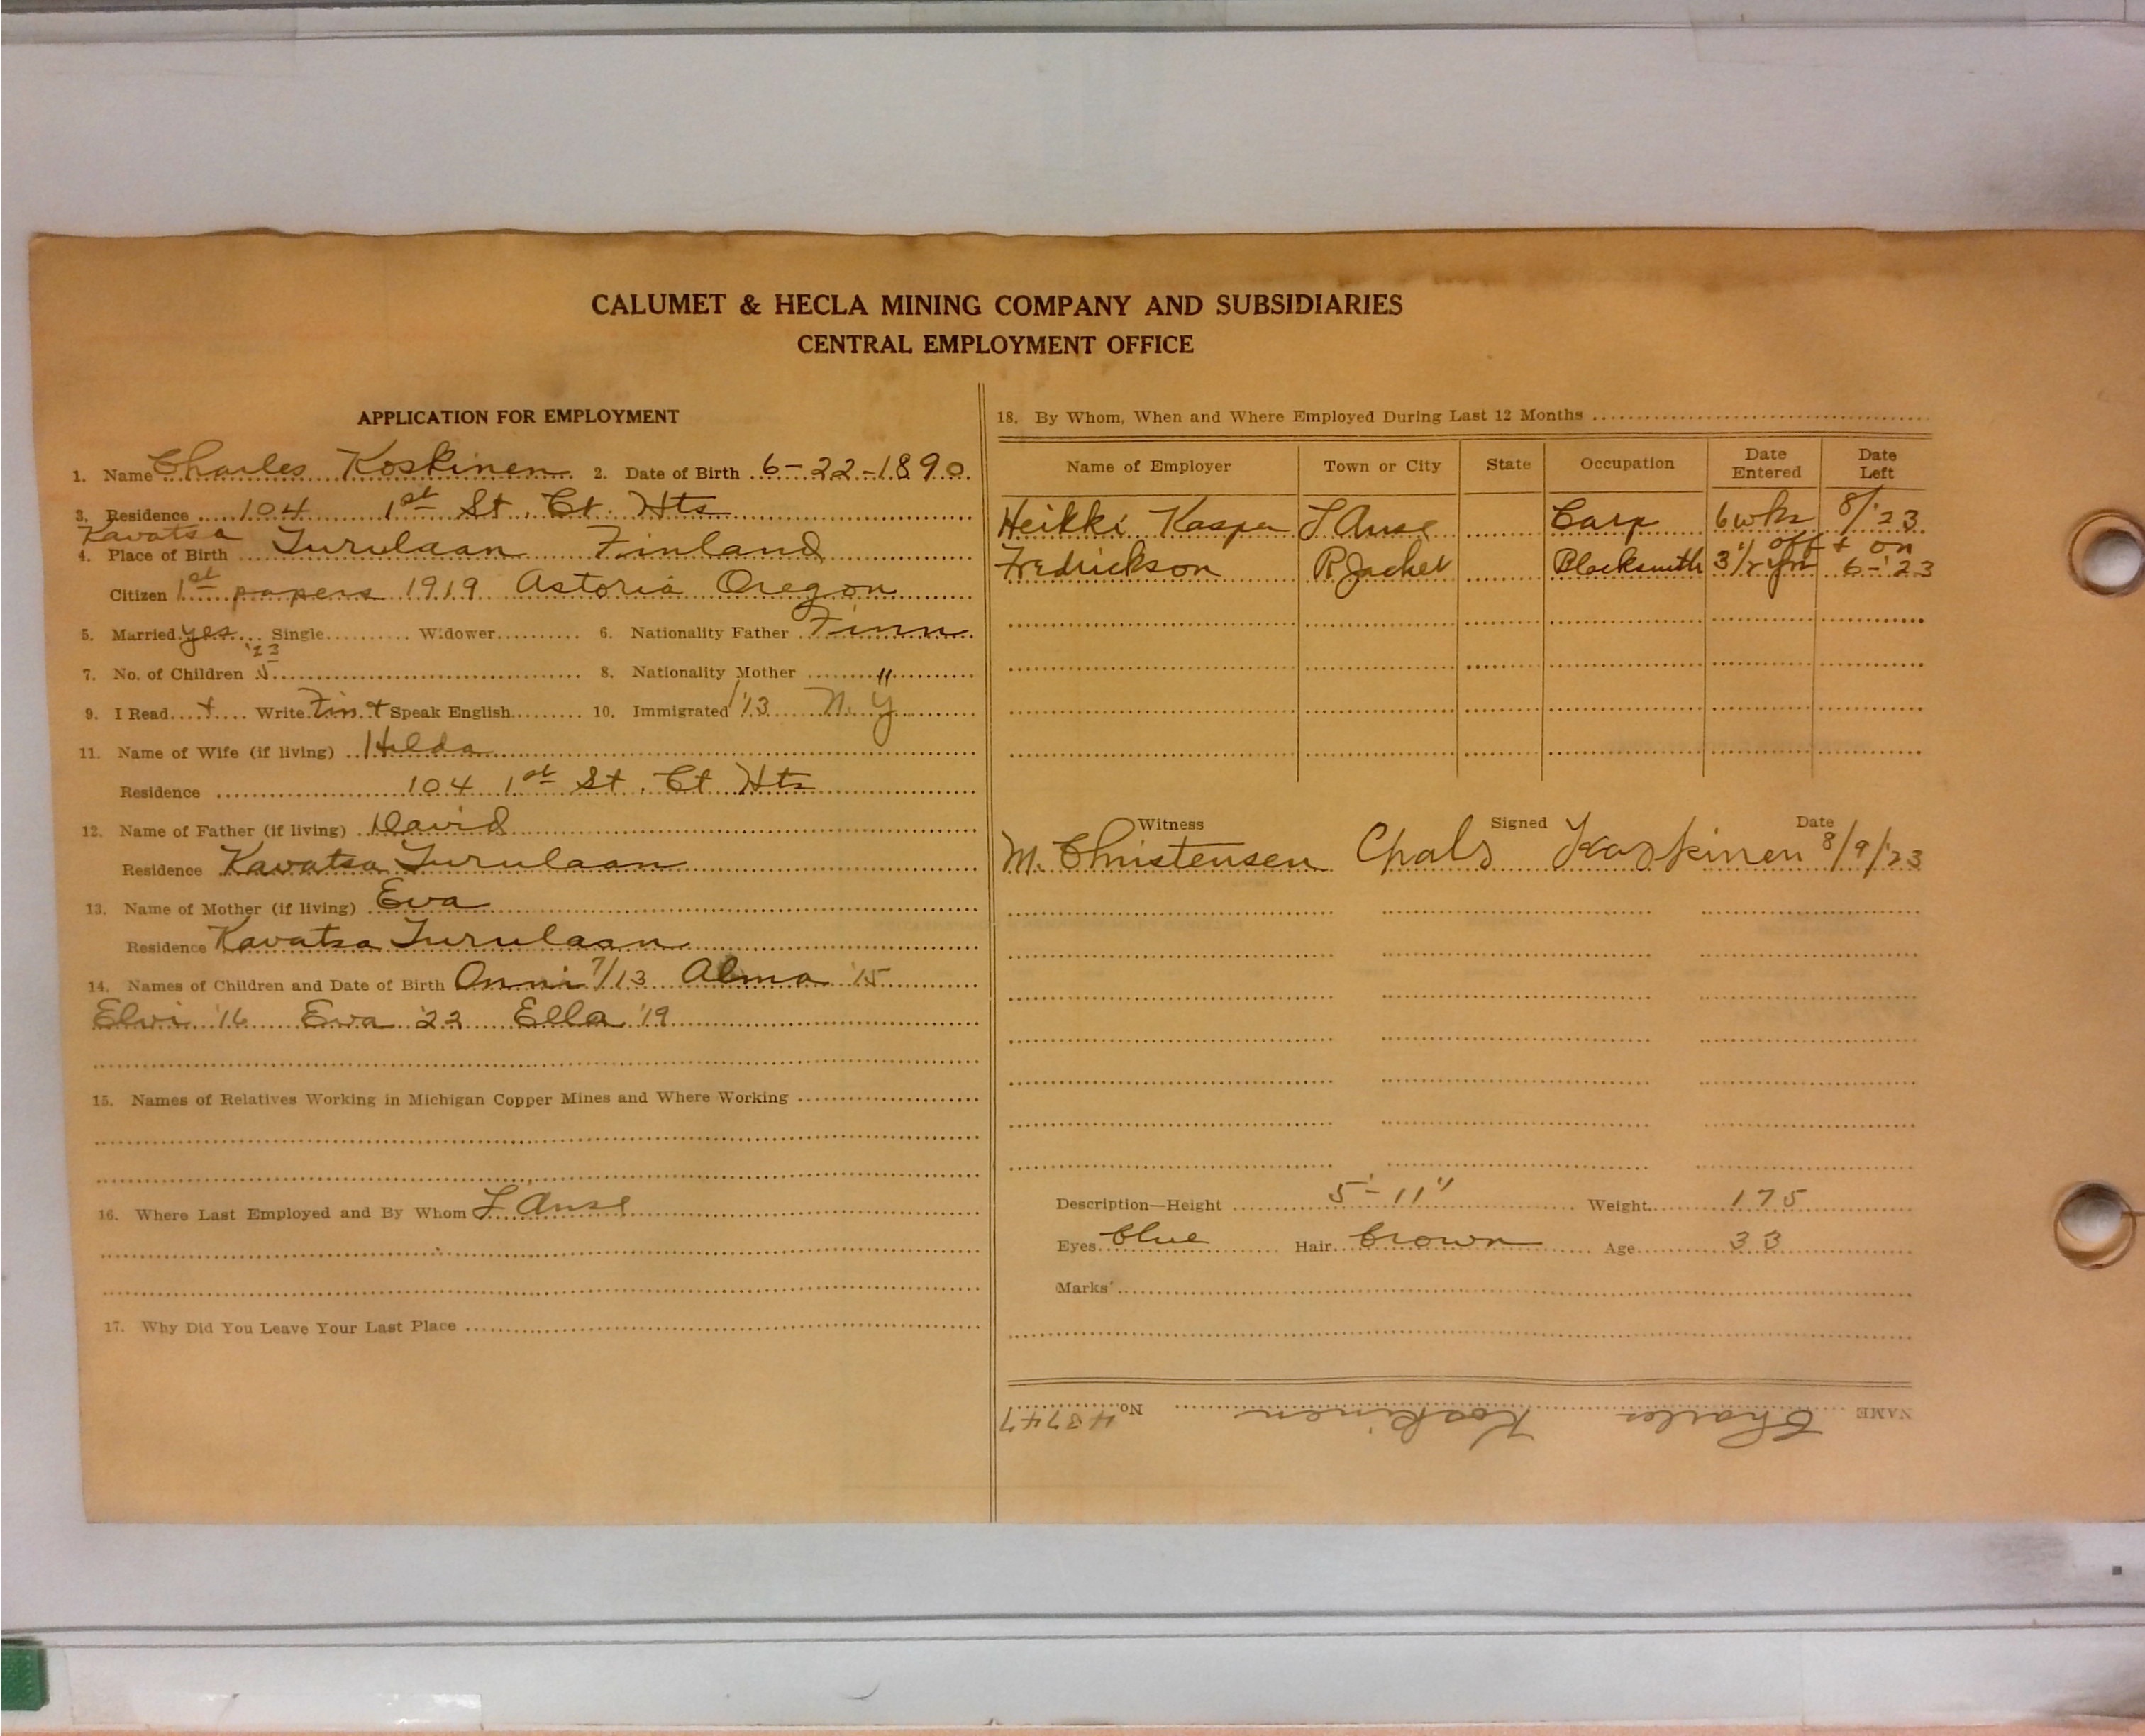 CALUMET & HECLA MINING COMPANY AND SUBSIDIARIES
CENTRAL EMPLOYMENT OFFICE
APPLICATION FOR EMPLOYMENT
1. Name Charles Koskinen 2. Date of Birth 6-22-1890
3. Residence 104 1st St. Ct. Hts
Kavatsa
4. Place of Birth Turulaan Finland
Citizen 1st papers 1919 Astoria Oregon
5. Married yes Single Widower 6. Nationality Father Finn
'23
7. No. of Children 5 8. Nationality Mother "
9. I Read + Write Fin + Speak English 10. Immigrated '13 N.Y
11. Name of Wife (if living) Hilda
Residence 104 1st St. Ct Hts
12. Name of Father (if living) David
Residence Kavatsa Turulaan
13. Name of Mother (if living) Eva
Residence Kavatsa Turulaan
14. Names of Children and Date of Birth Onni 7/13 Alma '15
Elvi '16 Eva '22 Ella '19
15. Names of Relatives Working in Michigan Copper Mines and Where Working
16. Where Last Employed and By Whom L'Anse
17. Why Did You Leave Your Last Place
18. By Whom, When and Where Employed During Last 12 Months
Name of Employer Town or City State Occupation Date Entered Date Left
Heikki Kaspa L'Anse Carp 6 wks 8/'23
off + on
Fredrickson R Jacket Blacksmith 3 1/2 yrs 6-'23
Witness Signed Date
M. Christensen Chals Koskinen 8/9/'23
Description—Height 5'-11" Weight 175
Eyes blue Hair brown Age 33
Marks
NAME Charles Koskinen No. 43747